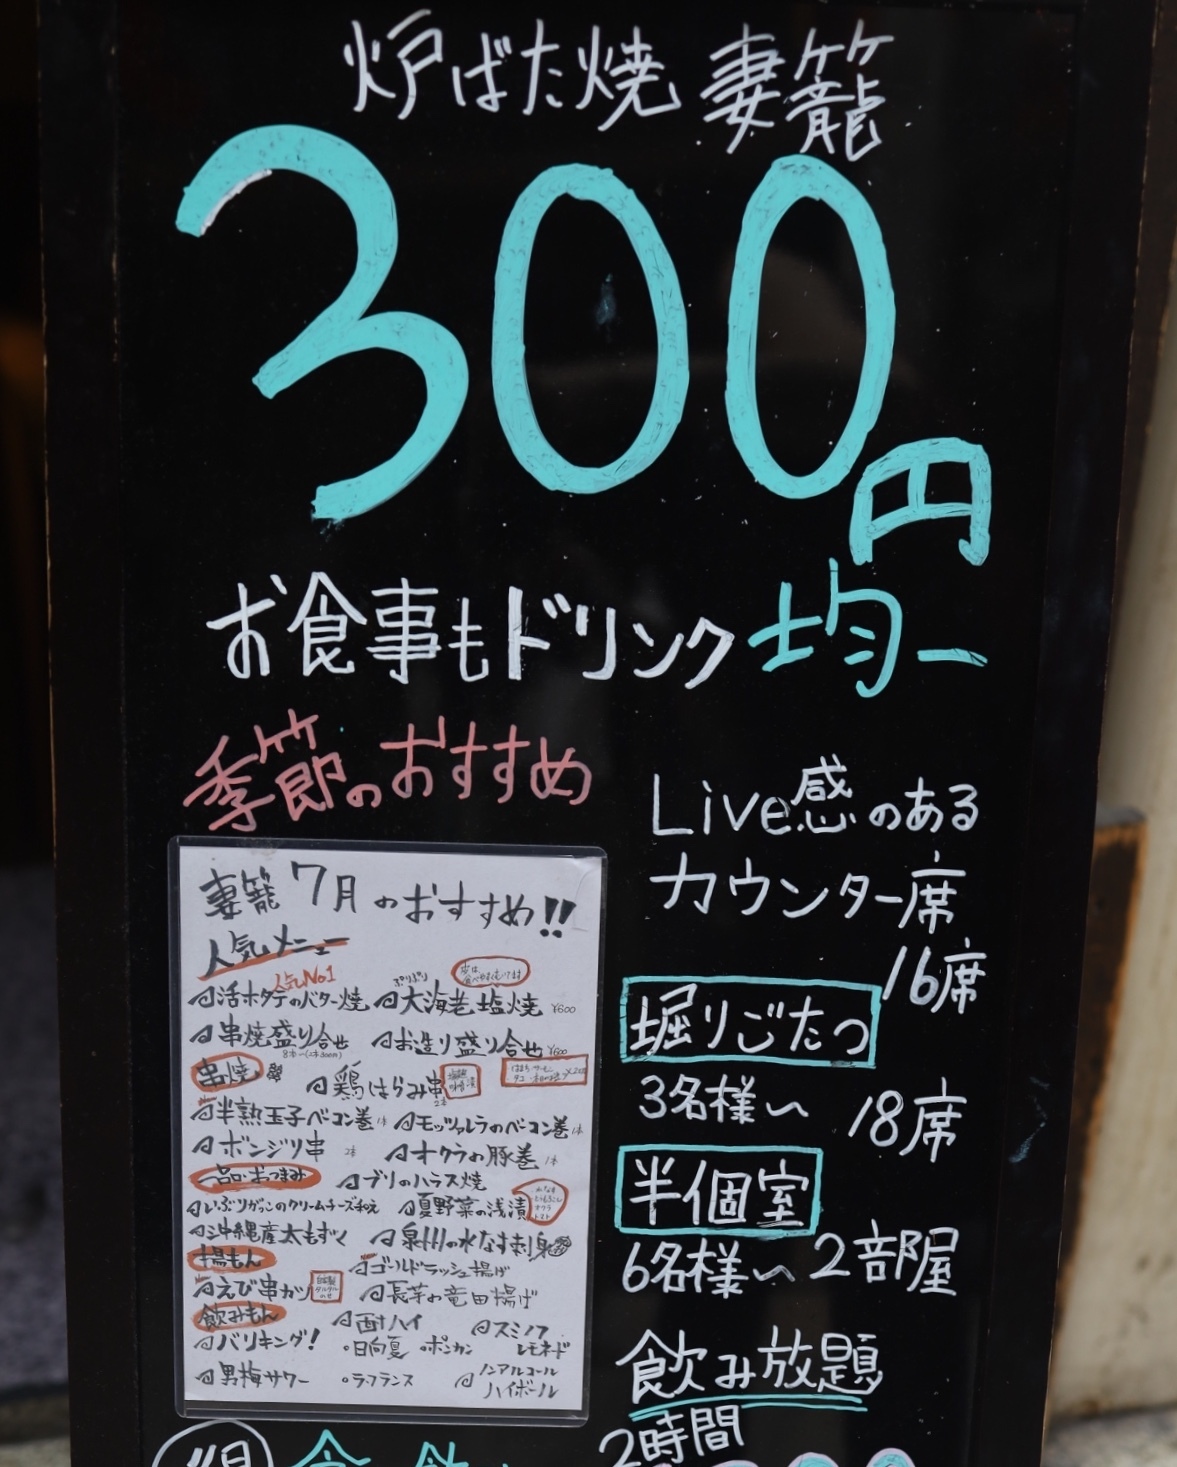 炉ばた焼 妻籠
300円
お食事もドリンク均一
季節のおすすめ
妻籠 7月のおすすめ!!
人気メニュー
人気No1
ぷりぷり
活ホタテのバター焼
大海老塩焼 ¥600
串焼盛り合せ
お造り盛り合せ ¥600
串焼
鶏はらみ串
2本
半熟玉子ベーコン巻 1本
モッツァレラのベーコン巻 1本
ボンジリ串 2本
オクラの豚巻 1本
一品・おつまみ
ブリのハラス焼
いぶりがっこのクリームチーズ和え
夏野菜の浅漬
沖縄産太もずく
泉州の水なす刺身
揚もん
ゴールドラッシュ揚げ
えび串カツ
自家製タルタルのせ
長芋の竜田揚げ
飲みもん
酎ハイ
スミノフ
レモネード
バリキング!
・日向夏 ・ポンカン
男梅サワー
・ラ・フランス
ノンアルコール
ハイボール
Live感のある
カウンター席
16席
堀りごたつ
3名様〜 18席
半個室
6名様〜 2部屋
飲み放題
2時間